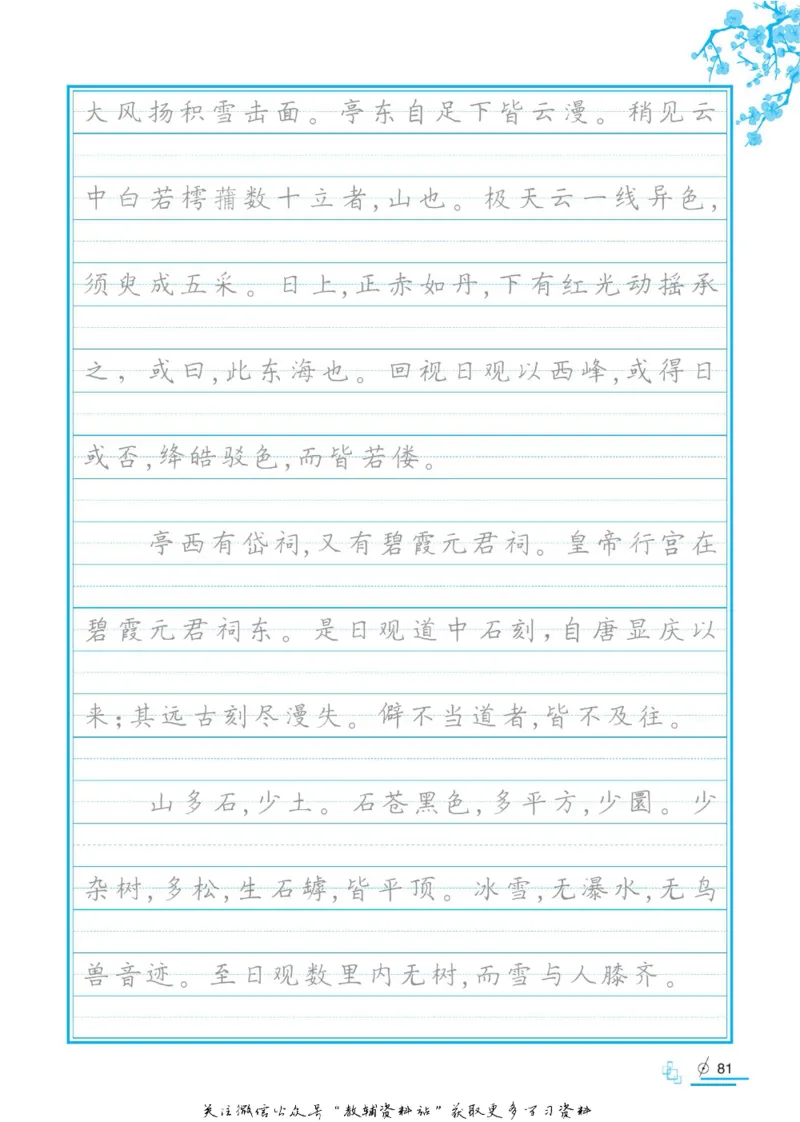 大风扬积雪击面。亭东自足下皆云漫。稍见云
中白若樗蒱数十立者,山也。极天云一线异色,
须臾成五采。日上,正赤如丹,下有红光动摇承
之，或曰,此东海也。回视日观以西峰,或得日
或否,绛皓驳色,而皆若偻。
亭西有岱祠,又有碧霞元君祠。皇帝行宫在
碧霞元君祠东。是日观道中石刻,自唐显庆以
来;其远古刻尽漫失。僻不当道者,皆不及往。
山多石,少土。石苍黑色,多平方,少圜。少
杂树,多松,生石罅,皆平顶。冰雪,无瀑水,无鸟
兽音迹。至日观数里内无树,而雪与人膝齐。
81
关注微信公众号“教辅资料站”获取更多学习资料